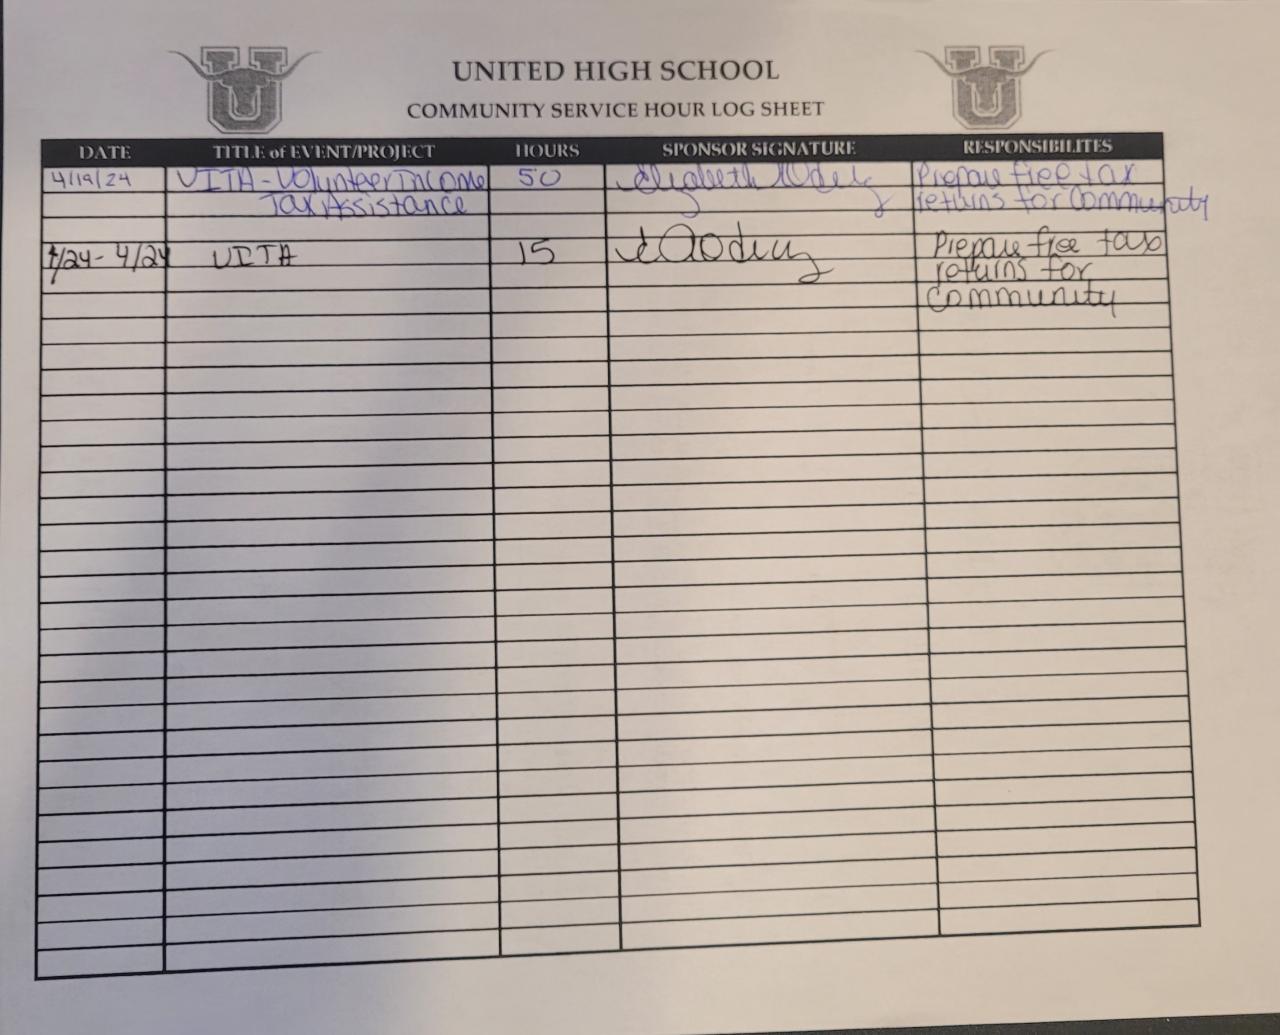 U U
UNITED HIGH SCHOOL
COMMUNITY SERVICE HOUR LOG SHEET
DATE TITLE of EVENT/PROJECT HOURS SPONSOR SIGNATURE RESPONSIBILITES
4/19/24 VITA - Volunteer Income 50 Elizabeth Prepare free tax
Tax Assistance returns for Community
4/24 VITA 15 Prepare free tax
returns for
community